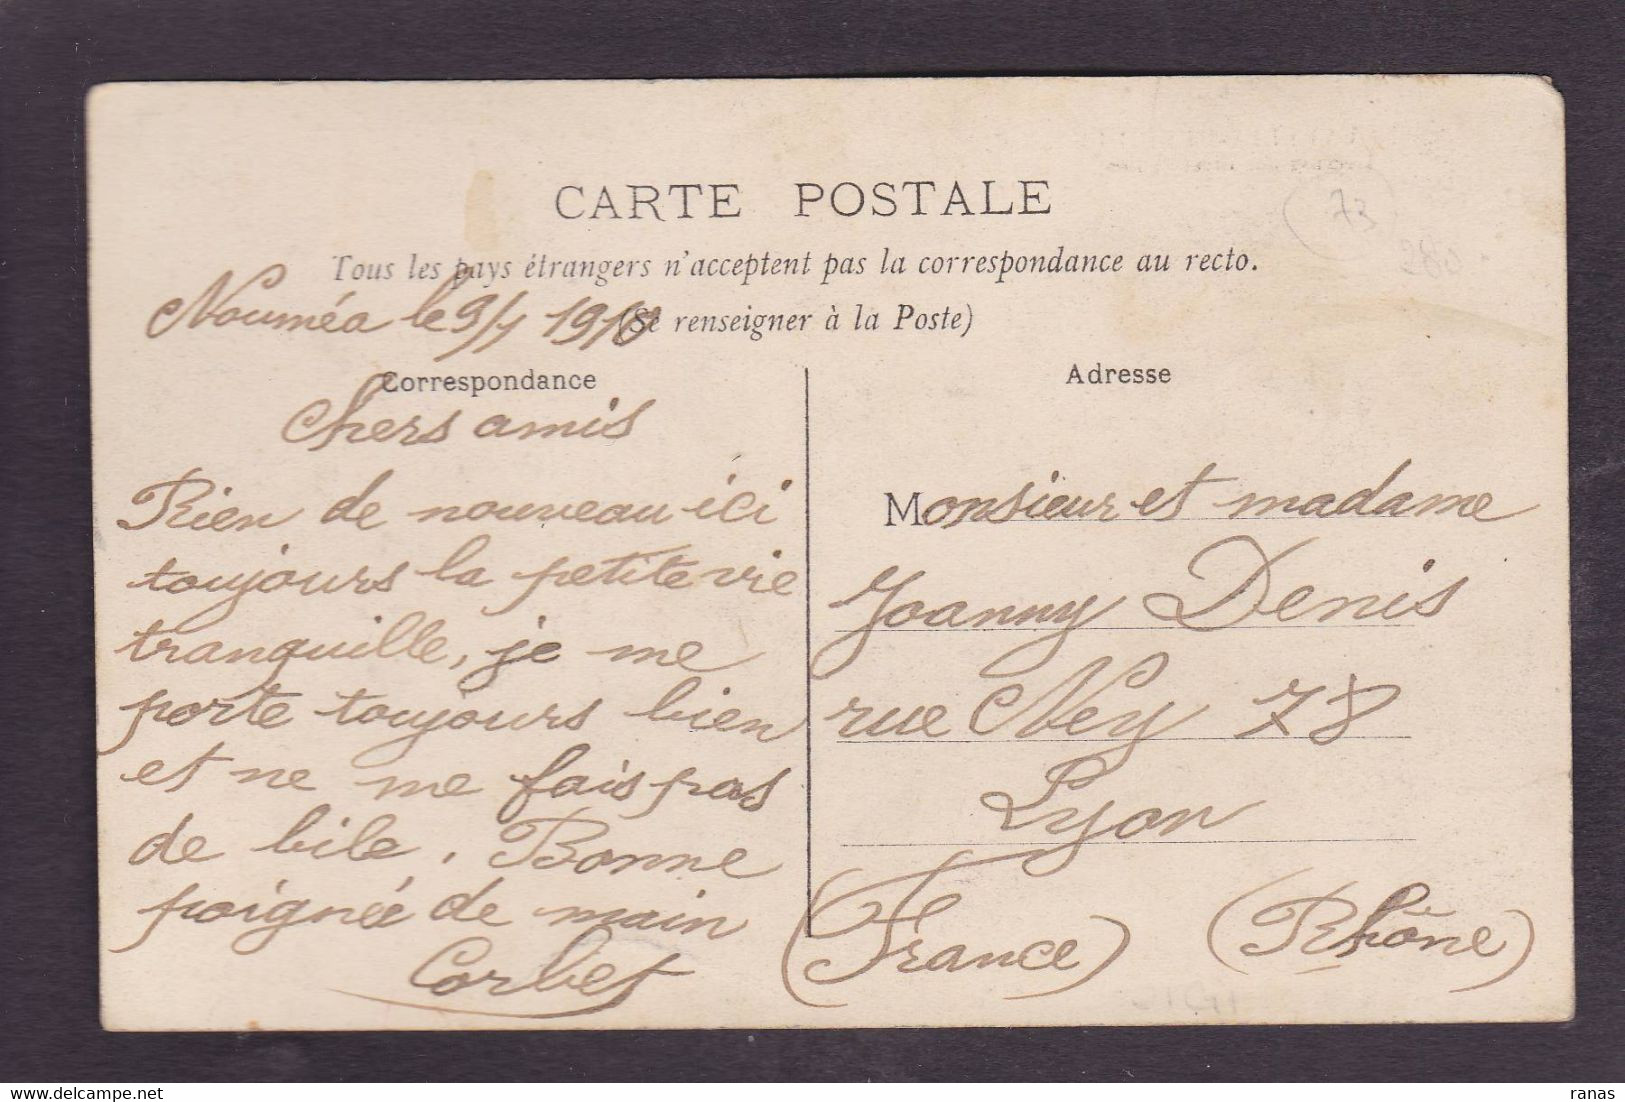 CARTE POSTALE
Tous les pays étrangers n'acceptent pas la correspondance au recto.
(Se renseigner à la Poste)
Nouméa le 9/1 1910
Correspondance
Chers amis
Rien de nouveau ici
toujours la petite vie
tranquille, je me
porte toujours bien
et ne me fais pas
de bile. Bonne
poignée de main
Corbet
Adresse
Monsieur et madame
Joanny Denis
rue Ney 78
Lyon
(France) (Rhône)
73
280
ranas